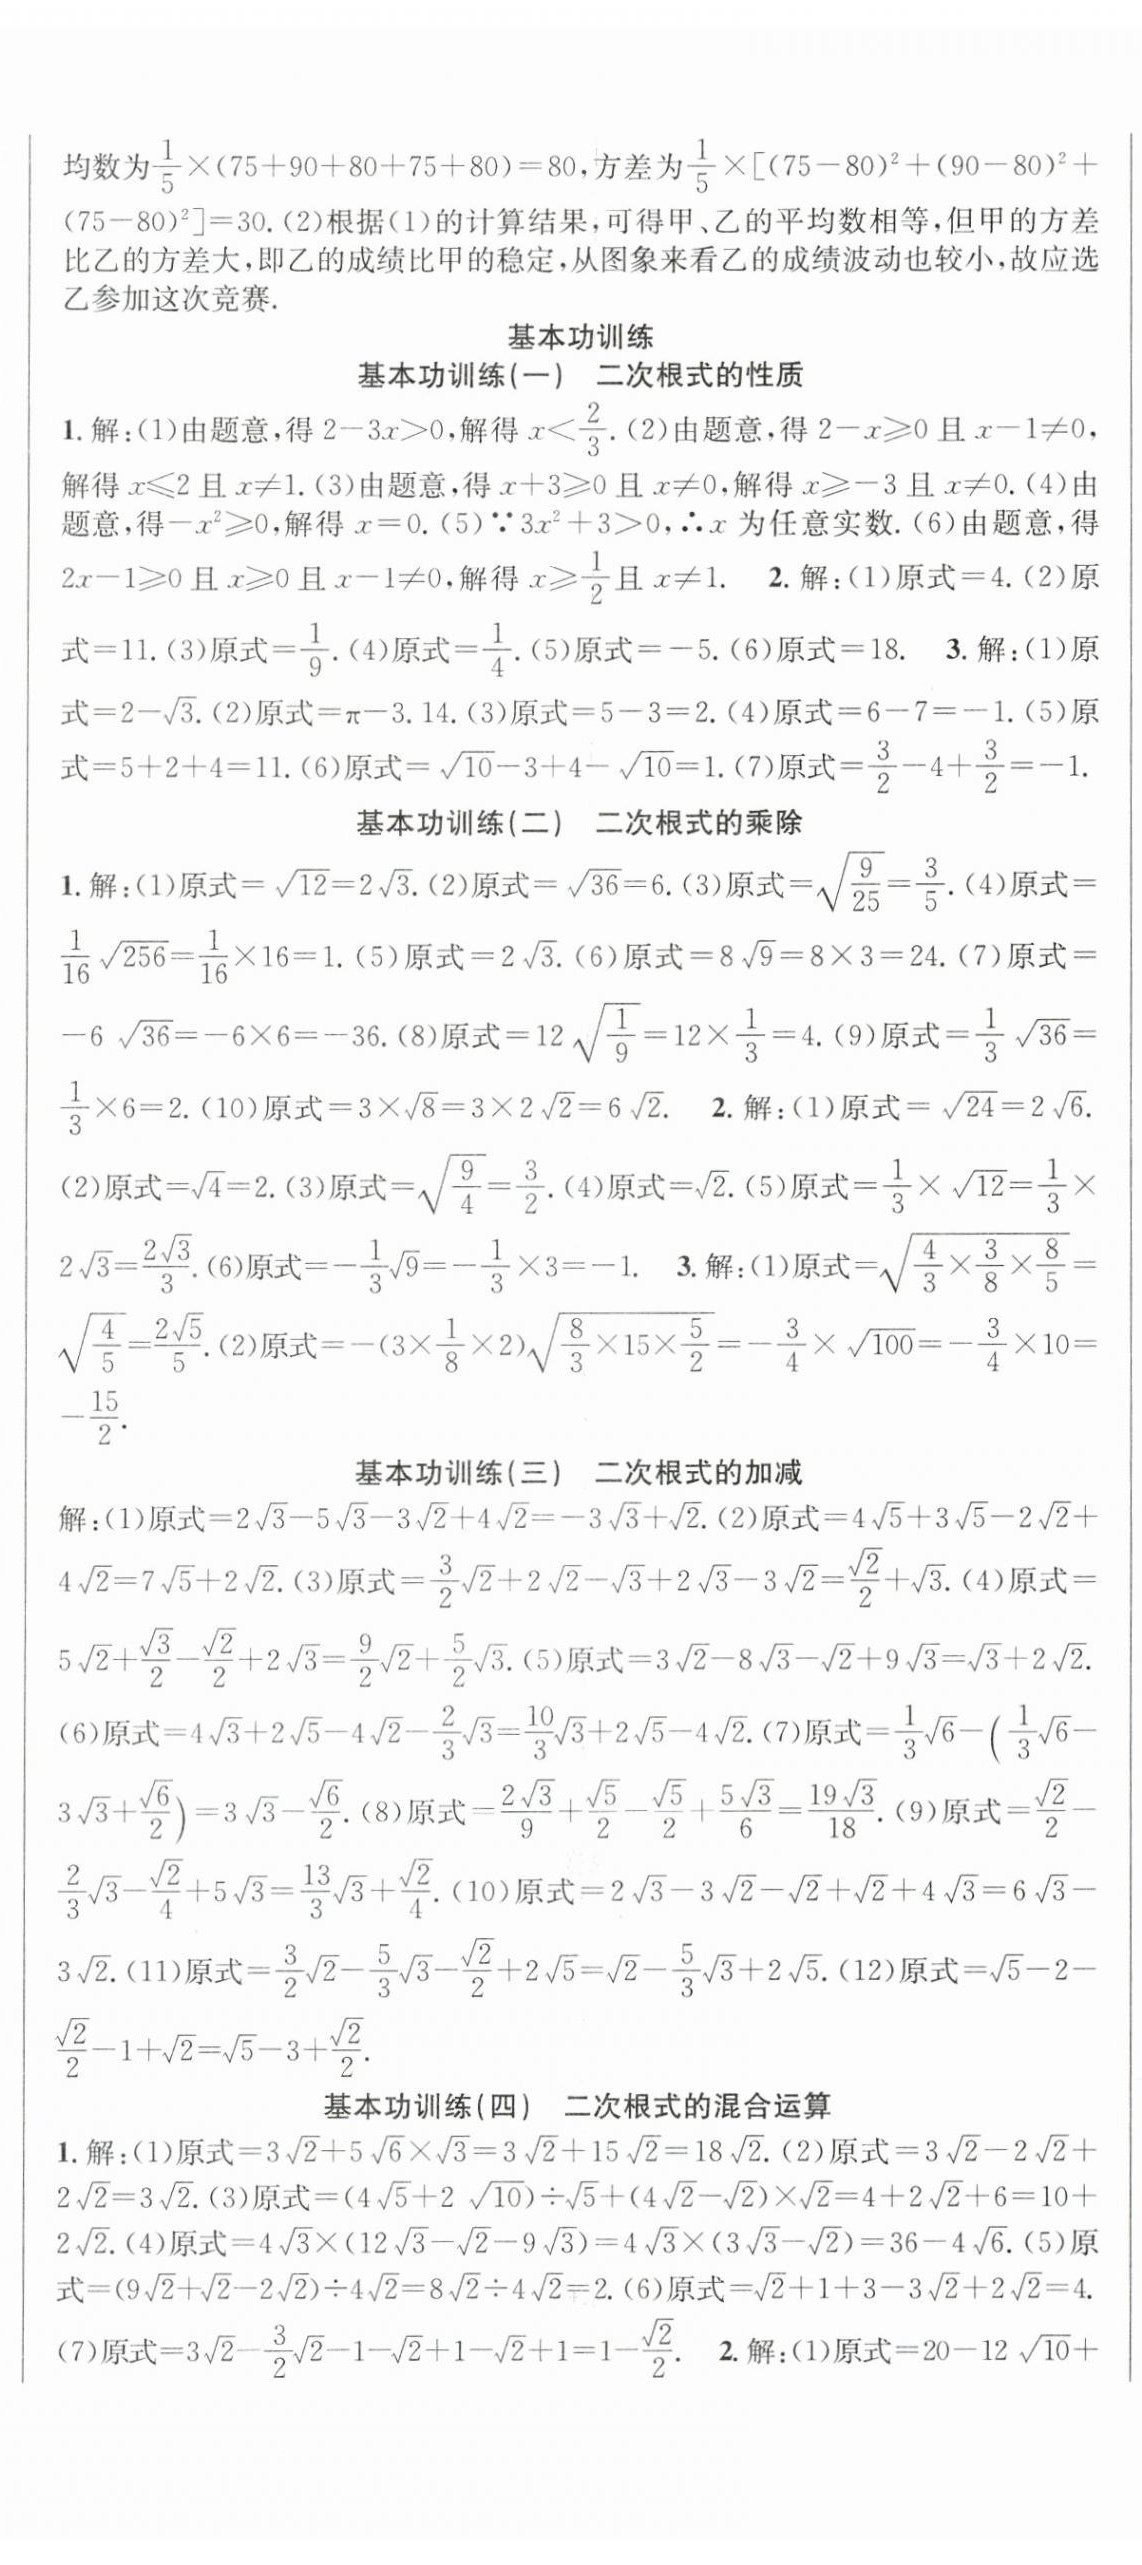 均数为1/5×(75+90+80+75+80)=80,方差为1/5×[(75-80)²+(90-80)²+
(75-80)²]=30.(2)根据(1)的计算结果,可得甲、乙的平均数相等,但甲的方差
比乙的方差大,即乙的成绩比甲的稳定,从图象来看乙的成绩波动也较小,故应选
乙参加这次竞赛.
基本功训练
基本功训练(一) 二次根式的性质
1.解:(1)由题意,得2-3x>0,解得x<2/3.(2)由题意,得2-x≥0且x-1≠0,
解得x≤2且x≠1.(3)由题意,得x+3≥0且x≠0,解得x≥-3且x≠0.(4)由
题意,得-x²≥0,解得x=0.(5)∵3x²+3>0,∴x为任意实数.(6)由题意,得
2x-1≥0且x≥0且x-1≠0,解得x≥1/2且x≠1. 2.解:(1)原式=4.(2)原
式=11.(3)原式=1/9.(4)原式=1/4.(5)原式=-5.(6)原式=18. 3.解:(1)原
式=2-√3.(2)原式=π-3.14.(3)原式=5-3=2.(4)原式=6-7=-1.(5)原
式=5+2+4=11.(6)原式=√10-3+4-√10=1.(7)原式=3/2-4+3/2=-1.
基本功训练(二) 二次根式的乘除
1.解:(1)原式=√12=2√3.(2)原式=√36=6.(3)原式=√(9/25)=3/5.(4)原式=
1/16√256=1/16×16=1.(5)原式=2√3.(6)原式=8√9=8×3=24.(7)原式=
-6√36=-6×6=-36.(8)原式=12√(1/9)=12×1/3=4.(9)原式=1/3√36=
1/3×6=2.(10)原式=3×√8=3×2√2=6√2. 2.解:(1)原式=√24=2√6.
(2)原式=√4=2.(3)原式=√(9/4)=3/2.(4)原式=√2.(5)原式=1/3×√12=1/3×
2√3=2√3/3.(6)原式=-1/3√9=-1/3×3=-1. 3.解:(1)原式=√(4/3×3/8×8/5)=
√(4/5)=2√5/5.(2)原式=-(3×1/8×2)√(8/3×15×5/2)=-3/4×√100=-3/4×10=
-15/2.
基本功训练(三) 二次根式的加减
解:(1)原式=2√3-5√3-3√2+4√2=-3√3+√2.(2)原式=4√5+3√5-2√2+
4√2=7√5+2√2.(3)原式=3/2√2+2√2-√3+2√3-3√2=√2/2+√3.(4)原式=
5√2+√3/2-√2/2+2√3=9/2√2+5/2√3.(5)原式=3√2-8√3-√2+9√3=√3+2√2.
(6)原式=4√3+2√5-4√2-2/3√3=10/3√3+2√5-4√2.(7)原式=1/3√6-(1/3√6-
3√3+√6/2)=3√3-√6/2.(8)原式=2√3/9+√5/2-√5/2+5√3/6=19√3/18.(9)原式=√2/2-
2/3√3-√2/4+5√3=13/3√3+√2/4.(10)原式=2√3-3√2-√2+√2+4√3=6√3-
3√2.(11)原式=3/2√2-5/3√3-√2/2+2√5=√2-5/3√3+2√5.(12)原式=√5-2-
√2/2-1+√2=√5-3+√2/2.
基本功训练(四) 二次根式的混合运算
1.解:(1)原式=3√2+5√6×√3=3√2+15√2=18√2.(2)原式=3√2-2√2+
2√2=3√2.(3)原式=(4√5+2√10)÷√5+(4√2-√2)×√2=4+2√2+6=10+
2√2.(4)原式=4√3×(12√3-√2-9√3)=4√3×(3√3-√2)=36-4√6.(5)原
式=(9√2+√2-2√2)÷4√2=8√2÷4√2=2.(6)原式=√2+1+3-3√2+2√2=4.
(7)原式=3√2-3/2√2-1-√2+1-√2+1=1-√2/2. 2.解:(1)原式=20-12√10+